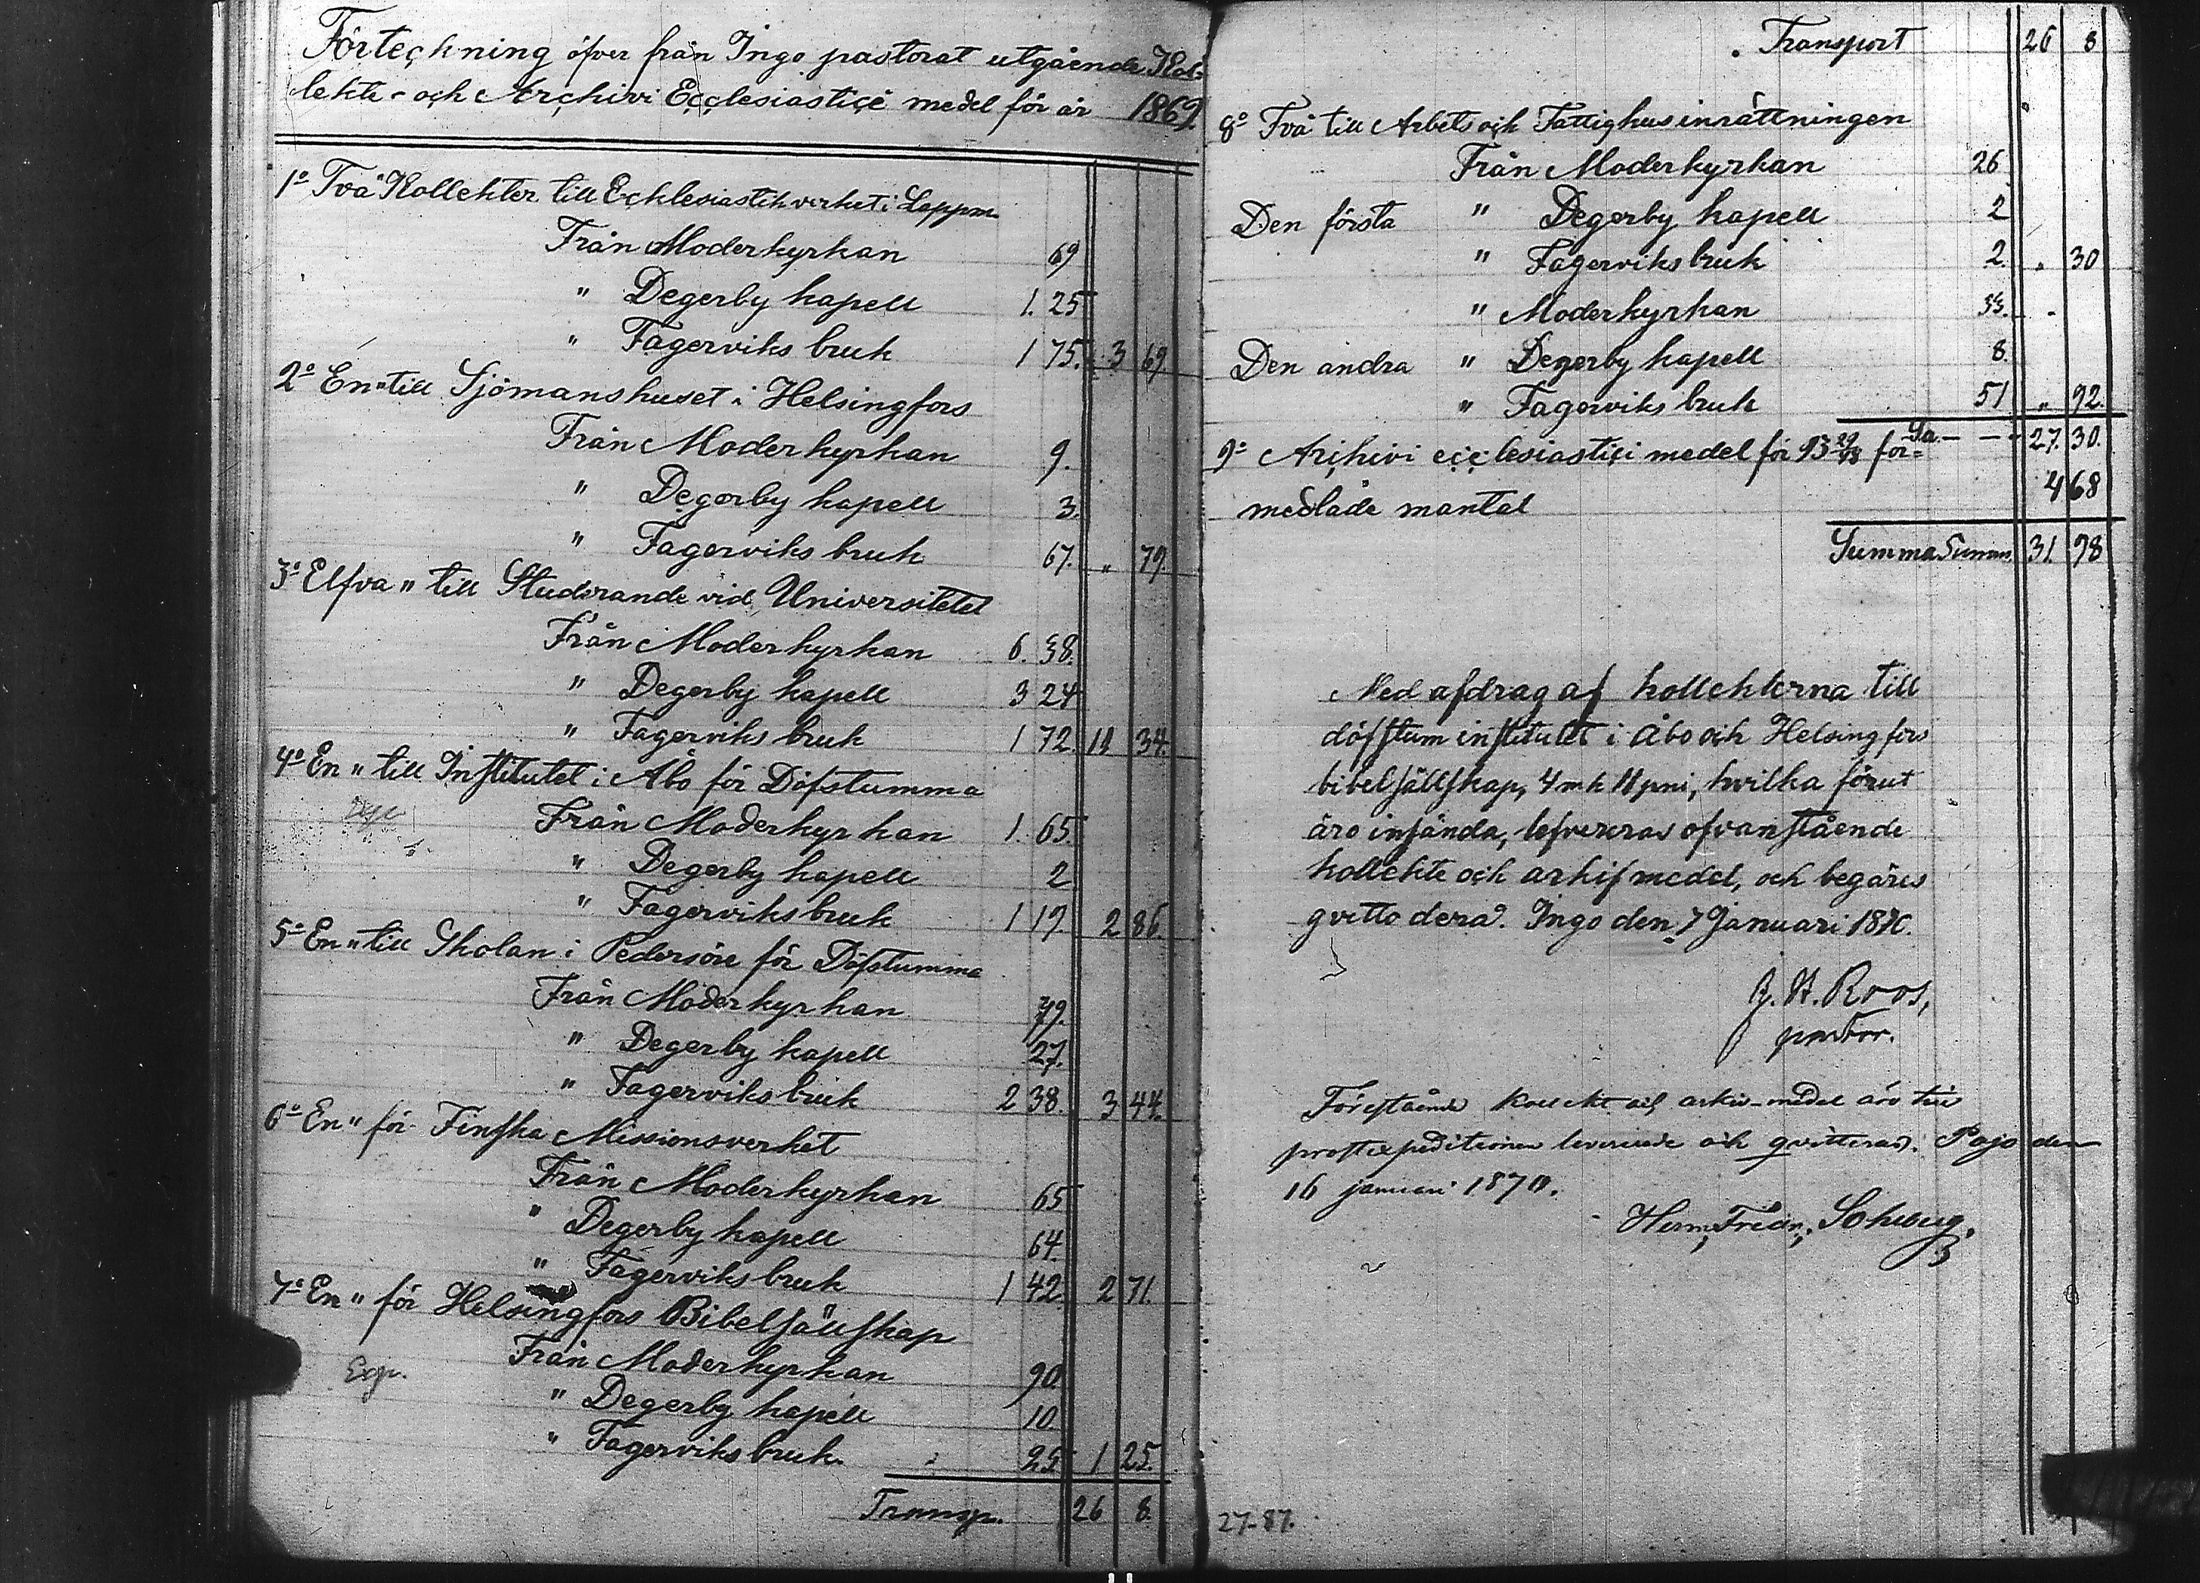 Förteckning öfver från Ingo pastorat utgående Kol-
lekte- och Archivi Ecclesiastici medel för år 1869.
1º Två Kollekter till Ecklesiastikverket i Lappm.
Från Moderkyrkan 69
" Degerby kapell 1. 25
" Fagerviks bruk 1 75. 3 69.
2º En " till Sjömanshuset i Helsingfors
Från Moderkyrkan 9.
" Degerby kapell 3.
" Fagerviks bruk 67. " 79.
3º Elfva " till Studerande vid Universitetet
Från Moderkyrkan 6. 38.
" Degerby kapell 3 24
" Fagerviks bruk 1 72. 11 34.
4º En " till Institutet i Åbo för Döfstumma
Från Moderkyrkan 1. 65.
" Degerby kapell 2
" Fagerviks bruk 1 19. 2 86.
5º En " till Skolan i Pedersöre för Döfstumma
Från Moderkyrkan 79.
" Degerby kapell 27.
" Fagerviks bruk 2 38. 3 44.
6º En " för Finska Missionsverket
Från Moderkyrkan 65
" Degerby kapell 64.
" Fagerviks bruk 1 42. 2 71.
7º En " för Helsingfors Bibelsällskap
Från Moderkyrkan 90
Exp.
" Degerby kapell 10
" Fagerviks bruk. 25 1 25.
Transp. 26 8.
Transport 26 8
8º Två till Arbets och Fattighusinrättningen
Från Moderkyrkan 26
Den första " Degerby kapell 2
" Fagerviks bruk 2. " 30
" Moderkyrkan 33.
Den andra " Degerby kapell 8.
" Fagerviks bruk 51 " 92.
Sa. - - 27. 30.
9º Archivi ecclesiastici medel för 93 29/48 för=
medlade mantal 4 68
Summa Summ. 31. 98
Med afdrag af kollekterna till
döfstum institutet i Åbo och Helsingfors
bibelsällskap, 4 mk 11 pni, hvilka förut
äro insända, lefvereras ofvanstående
kollekte och arkif medel, och begäres
qvitto derå. Ingo den 7 Januari 1870.
J. H. Roos,
pastor.
Förestående kollekt och arkiv-medel äro till
prostexpeditionen levererade och qvitteras. Pojo den
16 januari 1870.
Herm. Fredr. Sohlberg.
27-87.